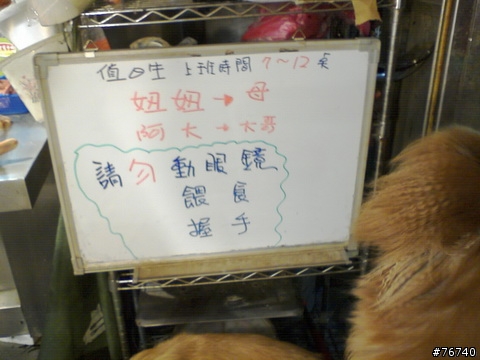 值日生 上班時間 7~12點
妞妞→母
阿大→大哥
請勿動眼鏡
餵食
握手
#76740